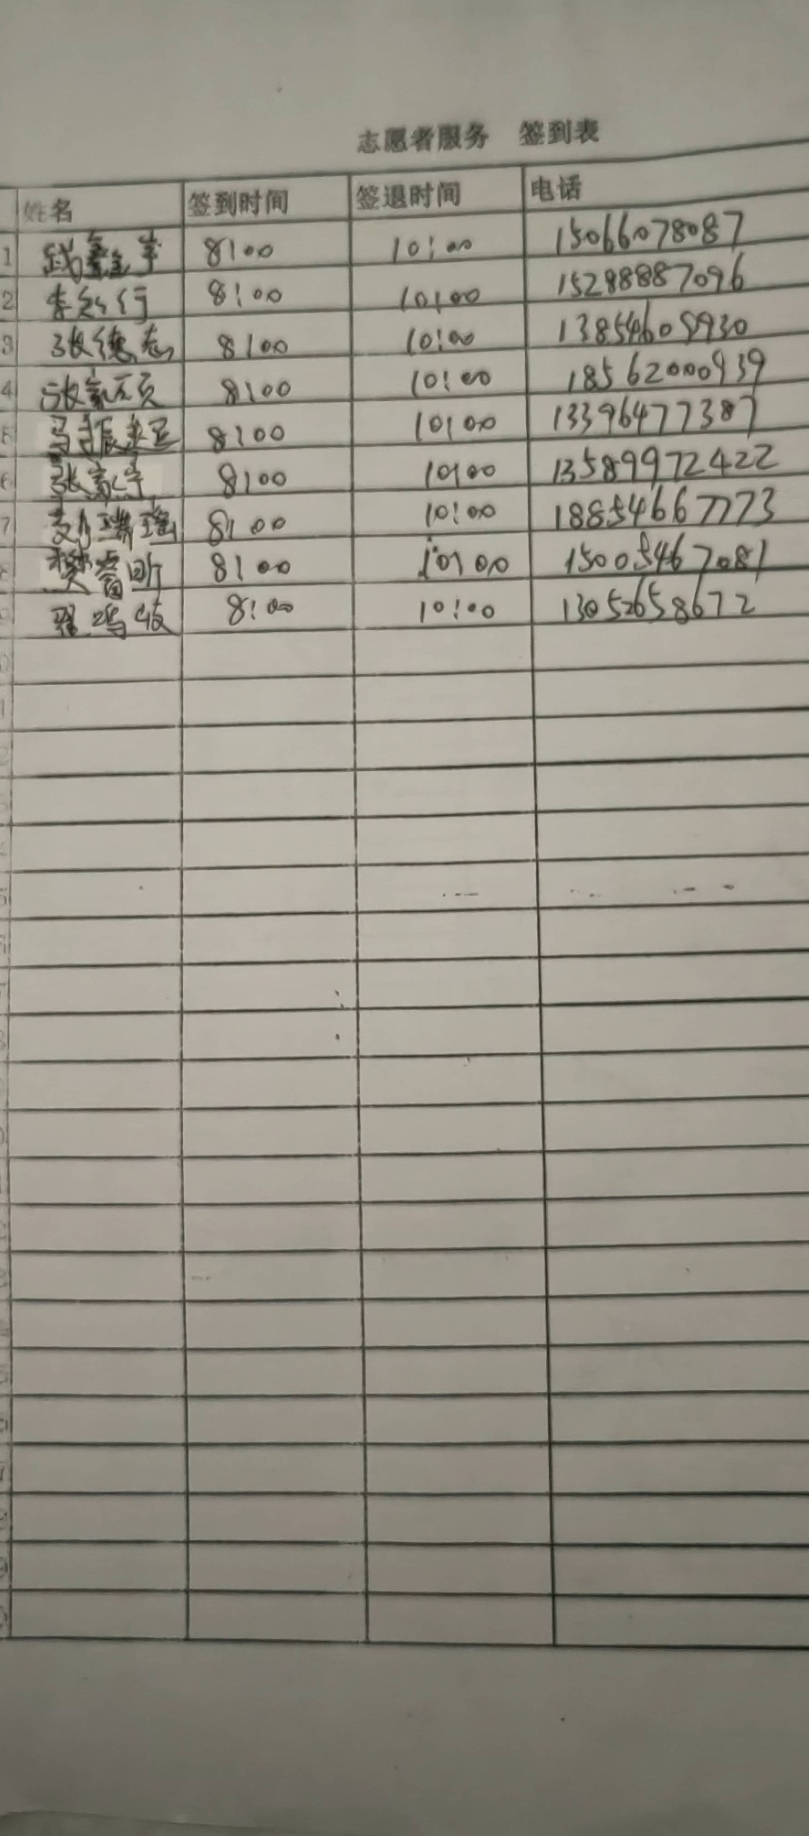 志愿者服务 签到表
姓名 签到时间 签退时间 电话
1 武鑫宇 8:00 10:00 15066078087
2 李知行 8:00 10:00 15288887096
3 张德志 8:00 10:00 13854609930
4 张家硕 8:00 10:00 18562000939
5 马振 8:00 10:00 13396477387
6 张家宁 8:00 10:00 13589972422
7 瑞瑶 8:00 10:00 18854667773
樊睿昕 8:00 10:00 15005467081
翟鸣岐 8:00 10:00 13052658672